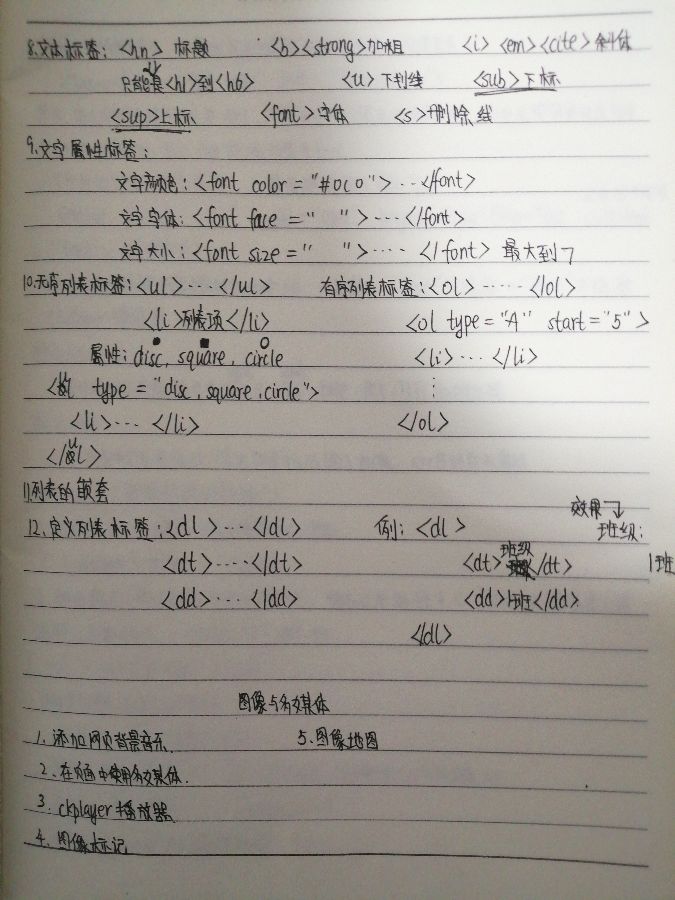 8.文本标签：<hn> 标题 <b><strong>加粗 <i> <em><cite>斜体
只能是<h1>到<h6> <u>下划线 <sub>下标
<sup>上标 <font>字体 <s>删除线
9.文字属性标签：
文字颜色：<font color="#0c0">…</font>
文字字体：<font face=" ">…</font>
文字大小：<font size=" ">…</font> 最大到7
10.无序列表标签：<ul>…</ul> 有序列表标签：<ol>……</ol>
<li>列表项</li> <ol type="A" start="5">
属性：disc, square, circle <li>…</li>
<ul type="disc, square, circle"> ⋮
<li>… </li> </ol>
</ul>
11.列表的嵌套
效果
12.定义列表标签：<dl>…</dl> 例：<dl> 班级：
<dt>……</dt> <dt>班级</dt> 1班
<dd>…</dd> <dd>1班</dd>
</dl>
图像与多媒体
1.添加网页背景音乐. 5.图像地图
2.在页面中使用多媒体.
3.ckplayer播放器
4.图像标记